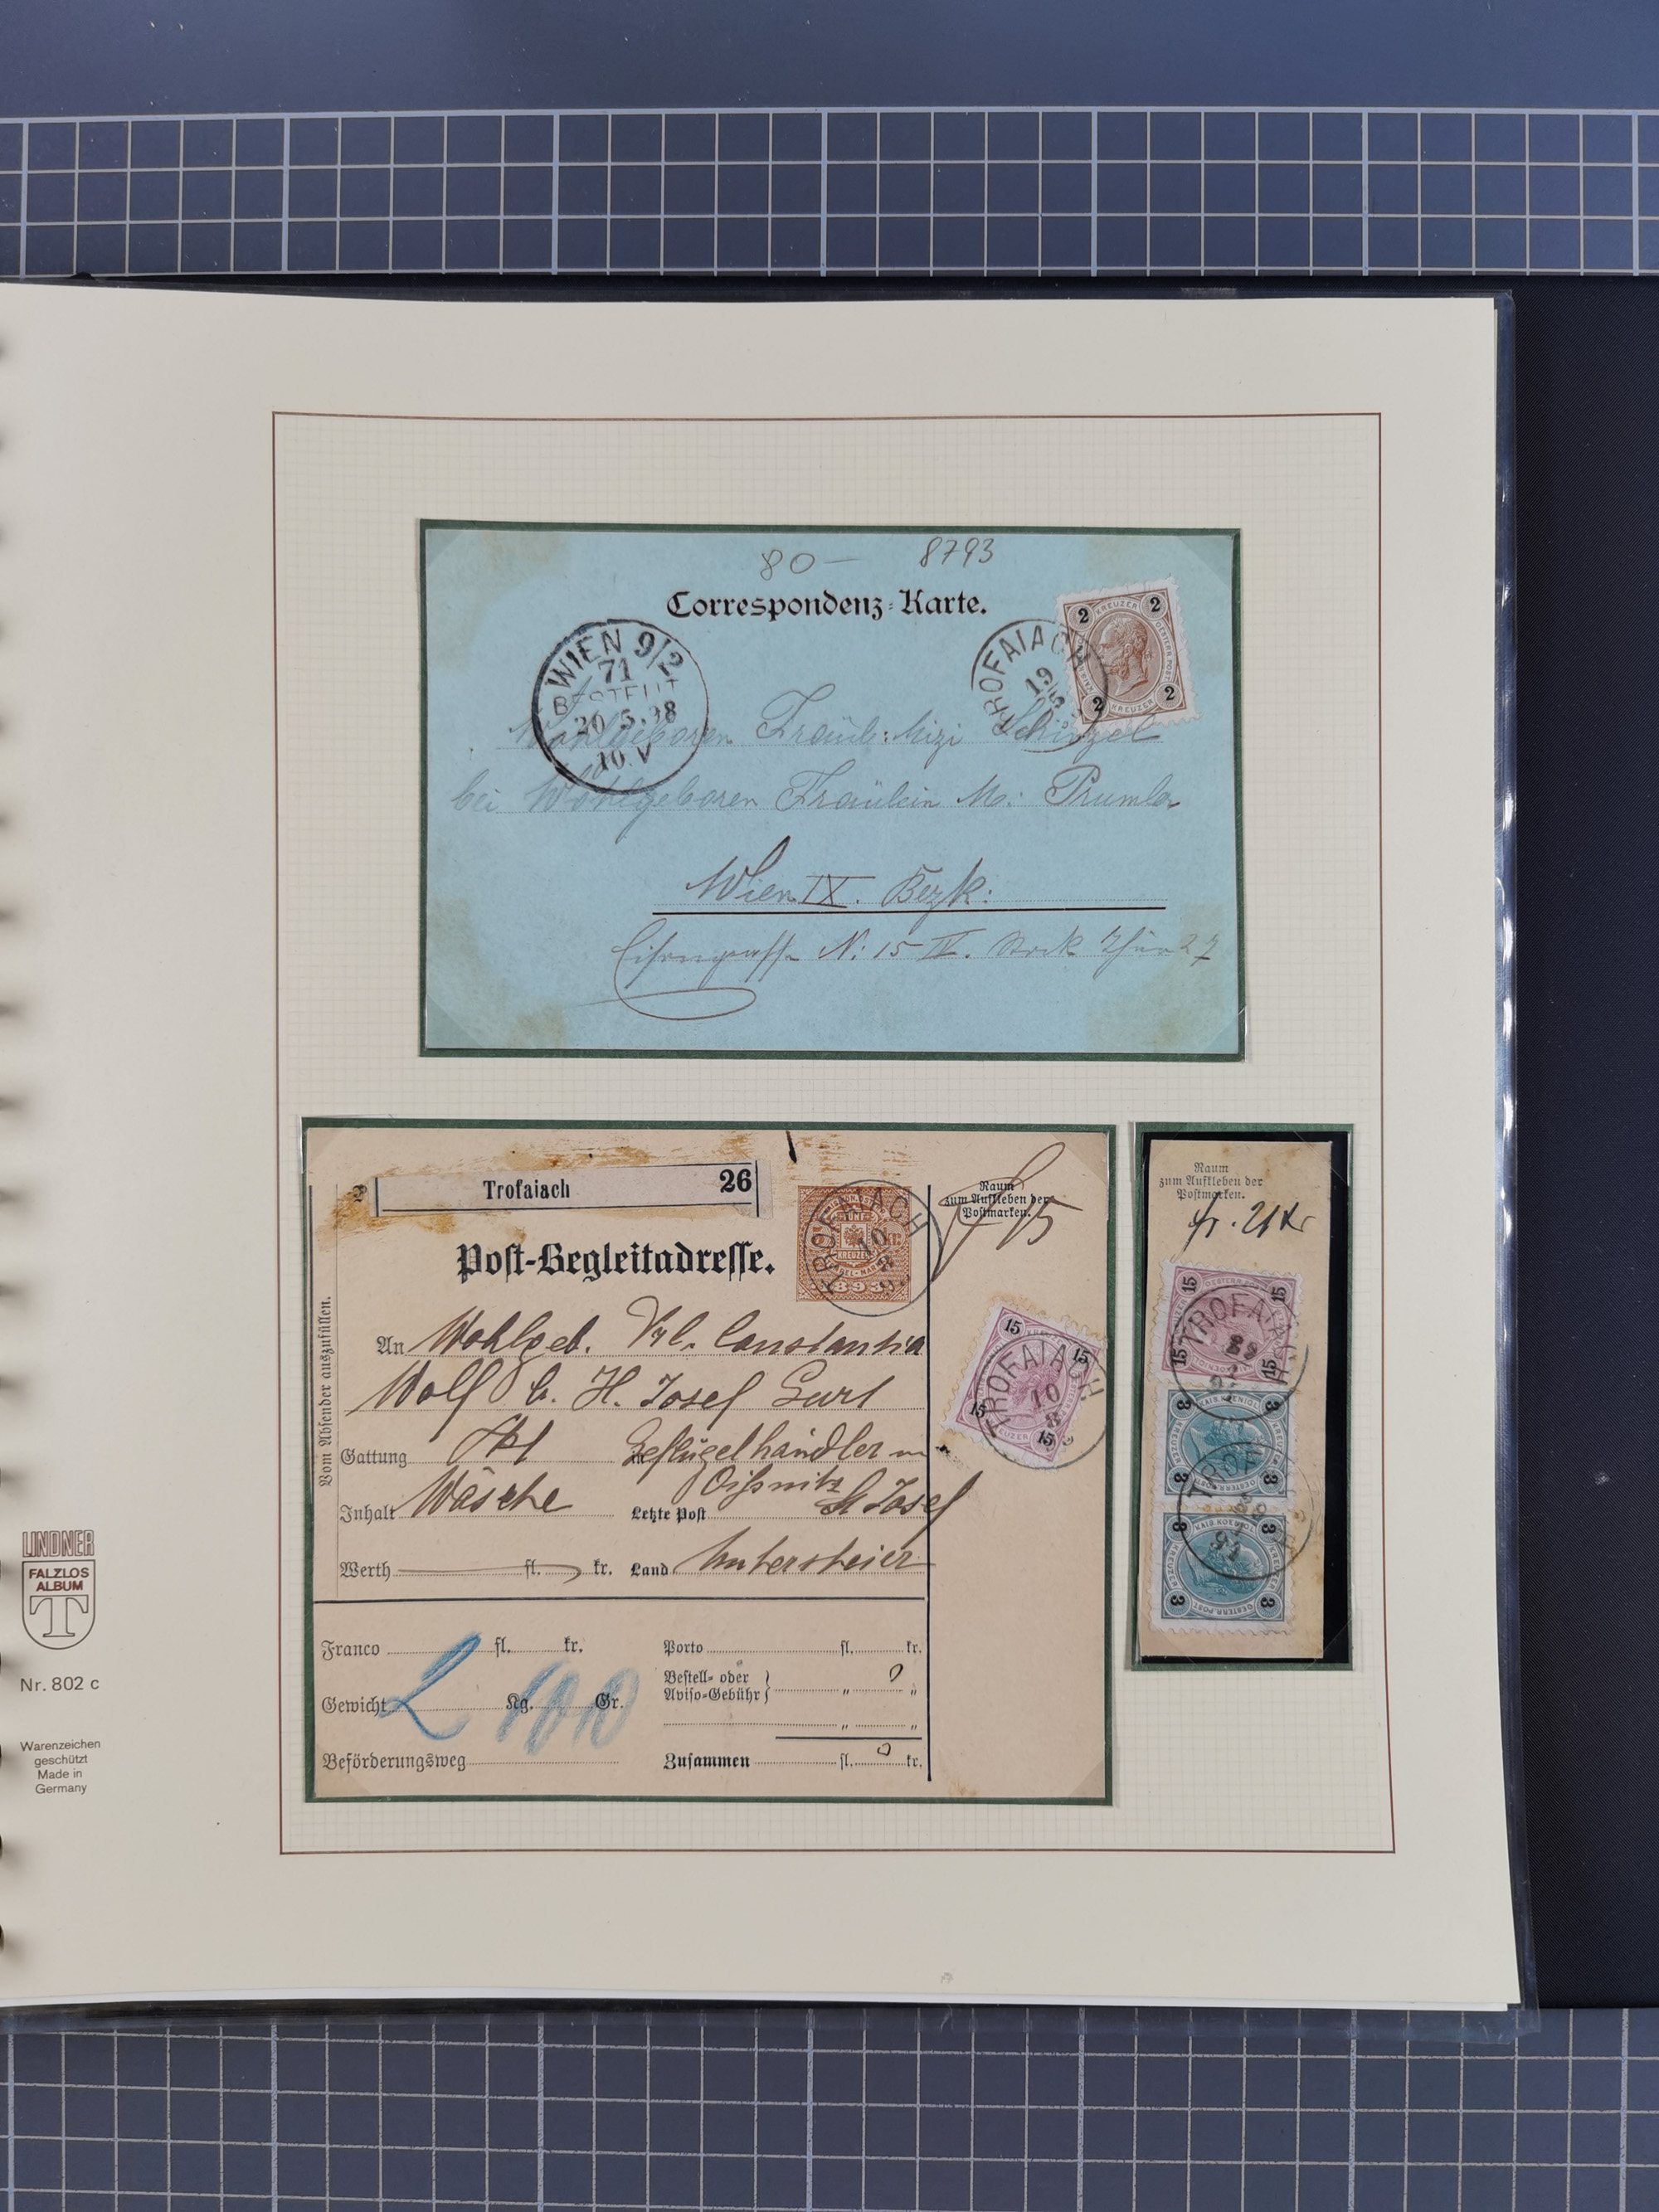 80 — 8793
Correspondenz-Karte.
WIEN 9/2
71
BESTELLT
20.5.98
10.V
TROFAIACH
19/5
2 KREUZER 2
2 KREUZER 2
Wohlgeboren Fräul: Mizi Schinzel
bei Wohlgeboren Fräulein M: Prumla
Wien IX. Bezk:
N: 15 IV. Stock Thür 27
Trofaiach 26
Post-Begleitadresse.
FÜNF
KREUZER
1893
TROFAIACH
10
8
Raum
zum Aufkleben der
Postmarken.
15
Vom Absender auszufüllen.
An Wohlgeb. Frl. Constantia
Wolf b. H. Josef Gurl
Gattung Geflügelhändler in
Inhalt Wäsche Letzte Post St Josef
Werth fl. kr. Land Untersteier
15 15
15 15
KREUZER
TROFAIACH
10
8
Franco fl. kr. Porto fl. kr.
Bestell- oder
Aviso-Gebühr " "
Gewicht 2 Kg. 100 Gr.
" "
Beförderungsweg Zusammen fl. kr.
Raum
zum Aufkleben der
Postmarken.
fr. 21 Kr
15 15
15 15
TROFAIACH
3 KAIS. KOENIGL. 3
3 OESTERR. POST 3
3 KAIS. KOENIGL. 3
3 OESTERR. POST 3
LINDNER
FALZLOS
ALBUM
T
Nr. 802 c
Warenzeichen
geschützt
Made in
Germany